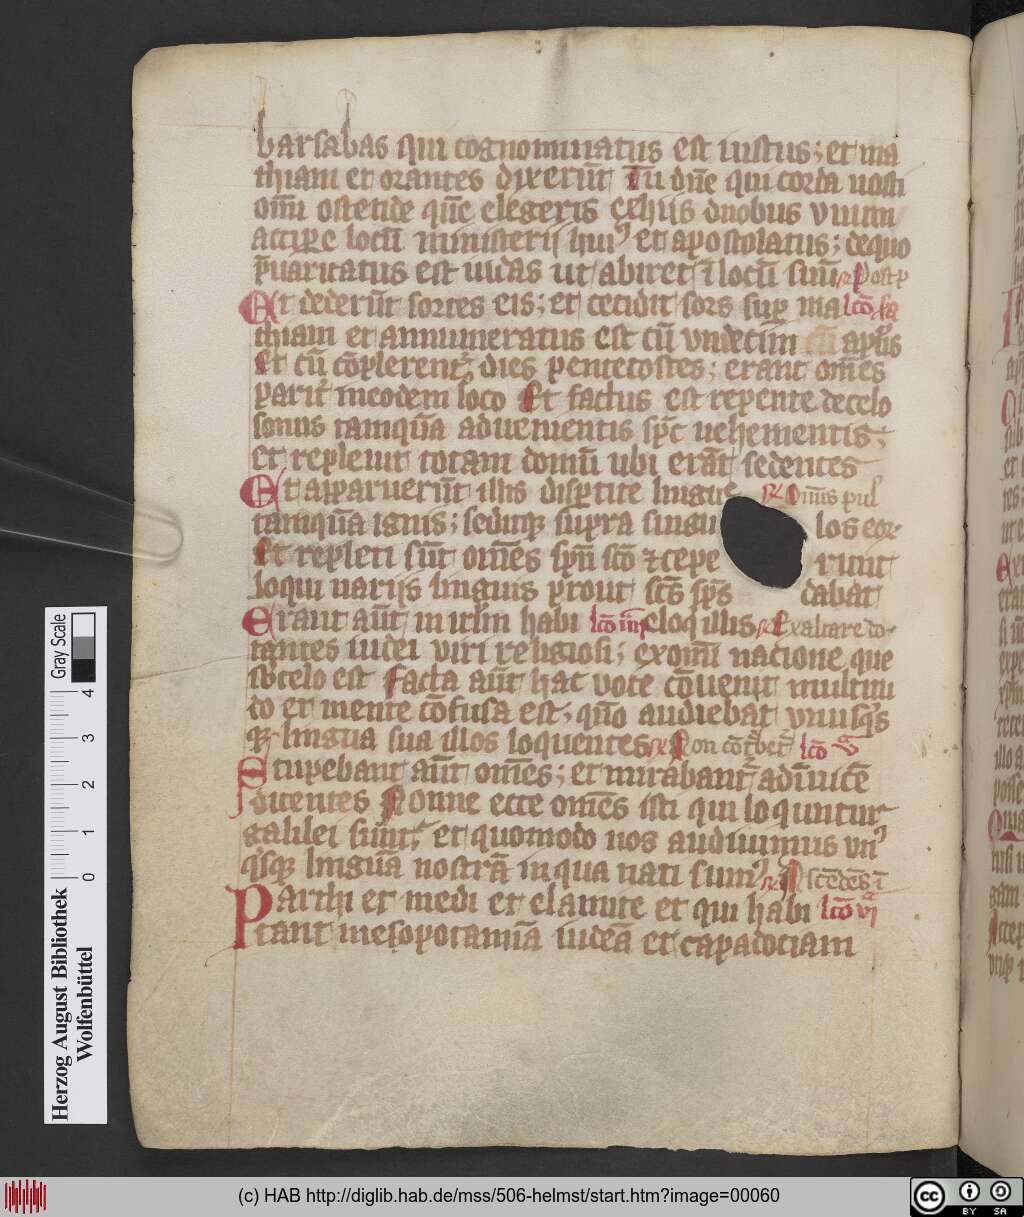 barsabas qui cognominatus est iustus; et ma
thiam et orantes dixerūt Tu dn̄e qui corda nosti
om̄i ostende quē elegeris ex hiis duobus vnum
accipe locū ministerij huiꝰ et apostolatus; de quo
p̄uaricatus est iudas ut abiret ī locū suū Post p
Et dederūt sortes eis; et cecidit sors sup ma lcō sa
thiam et annumeratus est cū vndecim cū aplis
Et cū cōplerent᷑ dies pentecostes; erant om̄es
parit᷑ in eodem loco Et factus est repente de celo
sonus tamquā aduenientis sp̄c uehementis;
et repleuit totam domū ubi erāt sedentes
Et apparuerūt illis disptite lingue R Om̄is pul
tamquā ignis; seditqꝫ supra singu los eoꝝ
Et repleti sūt om̄es sp̄u sc̄o ⁊ cepe runt
loqui uarijs linguis prout sc̄s sp̄s dabat
Erant aūt in irlm habi lcō iiij eloqͥ illis R Exaltare do
tantes iudei viri religiosi; ex om̄i nacione que
sb celo est Facta aūt hac voce cōuenit multitu
do et mente cōfusa est, qm̄o audiebat vnusqͥs
qꝫ lingua sua illos loquentes R Non cōt᷑bet᷑ lcō v
Stupebant aūt om̄es; et mirabant᷑ adīuicē
dicentes Nonne ecce om̄es isti qui loquntur
galilei sūnt; et quomodo nos audiuimus vn̄ꝰ
qͥsqꝫ linguā nostrā in qua nati sumꝰ R Ascēdēs ī
Parthi et medi et elamite et qui habi lcō vi
tant mesopotamiā iudeā et capadociam
Herzog August Bibliothek
Wolfenbüttel
0 1 2 3 4
Gray Scale
(c) HAB http://diglib.hab.de/mss/506-helmst/start.htm?image=00060
cc BY SA